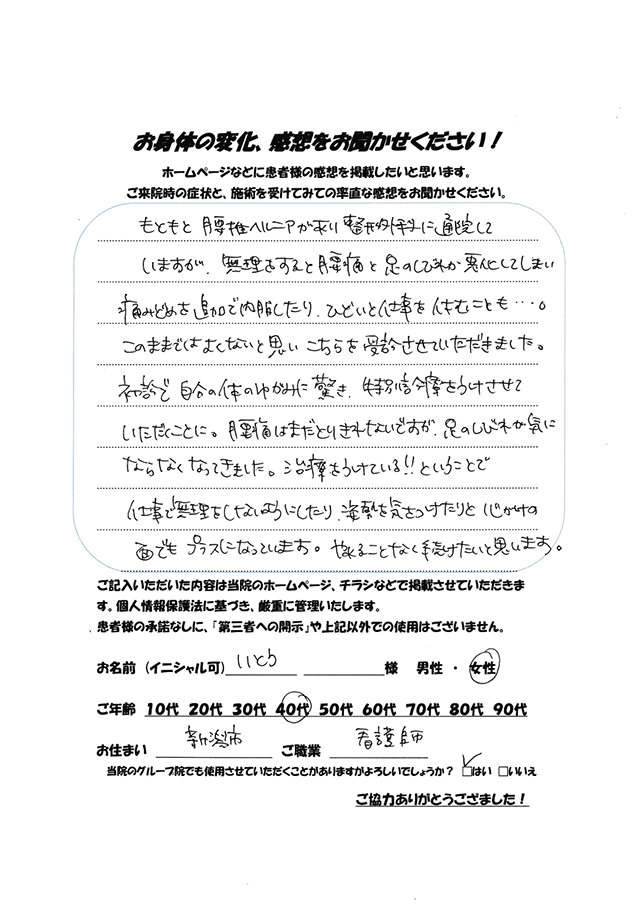 お身体の変化、感想をお聞かせください！
ホームページなどに患者様の感想を掲載したいと思います。
ご来院時の症状と、施術を受けてみての率直な感想をお聞かせください。
もともと腰椎ヘルニアがあり整形外科に通院して
いますが、無理をすると腰痛と足のしびれが悪化してしまい
痛みどめを追加で内服したり、ひどいと仕事を休むことも…。
このままではよくないと思いこちらを受診させていただきました。
初診で自分の体のゆがみに驚き、特別診療をうけさせて
いただくことに。腰痛はまだとりきれないですが、足のしびれが気に
ならなくなってきました。治療をうけている!!ということで
仕事で無理をしないようにしたり、姿勢を気をつけたりと心がけの
面でもプラスになっています。やめることなく手続けたいと思います。
ご記入いただいた内容は当院のホームページ、チラシなどで掲載させていただきま
す。個人情報保護法に基づき、厳重に管理いたします。
患者様の承諾なしに、「第三者への開示」や上記以外での使用はございません。
お名前（イニシャル可） 様 男性・女性
ご年齢 10代 20代 30代 40代 50代 60代 70代 80代 90代
お住まい 新潟市 ご職業 看護師
当院のグループ院でも使用させていただくことがありますがよろしいでしょうか？ □はい □いいえ
ご協力ありがとうござました！